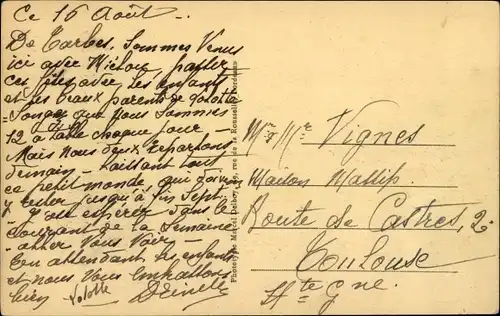 Ce 16 Août -
De Tarbes, Sommes Venus
ici avec passer
ces fêtes avec les enfants
et les beaux parents de Lolotte
Songez que nous sommes
12 à table chaque jour -
Mais nous deux repartons
demain - laissant tout
ce petit monde, qui doivent
y rester jusqu'à fin Sept.
J'ai espérer dans le
courant de la semaine
aller Vous Voir -
En attendant les enfants
et nous Vous embrassons
bien Lolotte
Phototypie Marcel Delboy, rue de la Rousselle, Bordeaux
Mme & Mr Vignes
Maison
Route de Castres, 2
Toulouse
Hte Gne.